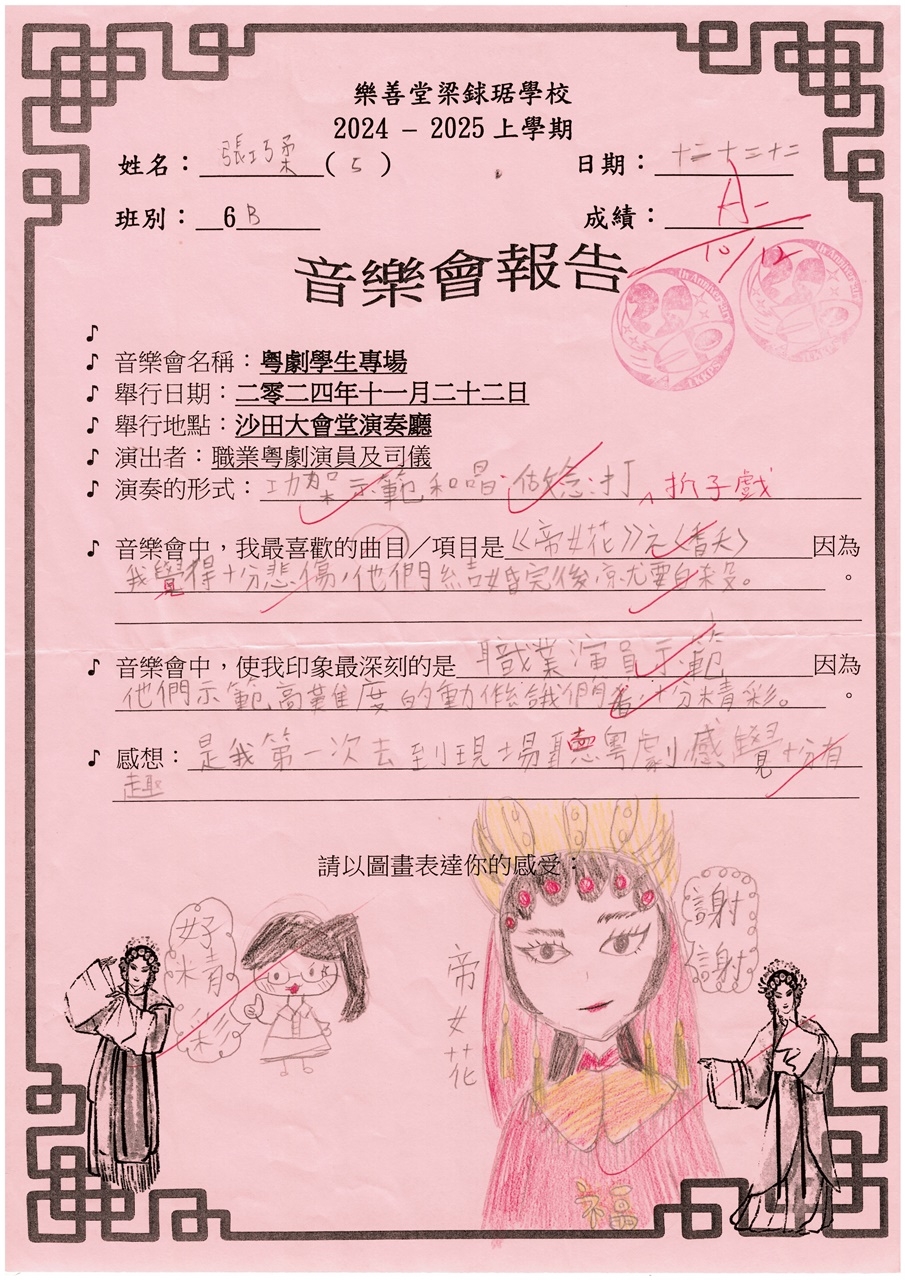 樂善堂梁銶琚學校
2024 – 2025 上學期
姓名：張巧柔(5) 日期：
班別：6B 成績：A-
10/12
音樂會報告
♪
♪ 音樂會名稱：粵劇學生專場
♪ 舉行日期：二零二四年十一月二十二日
♪ 舉行地點：沙田大會堂演奏廳
♪ 演出者：職業粵劇演員及司儀
♪ 演奏的形式：功架示範和唱、做、唸、打 折子戲
♪ 音樂會中，我最喜歡的曲目／項目是《帝女花》之〈香夭〉因為
我覺得十分悲傷，他們結婚完後就要自殺。 。
♪ 音樂會中，使我印象最深刻的是 職業演員示範 因為
他們示範高難度的動作讓我們看十分精彩。 。
♪ 感想：是我第一次去到現場聽粵劇感覺十分有
趣
請以圖畫表達你的感受：
好精彩
帝女花
謝謝
福